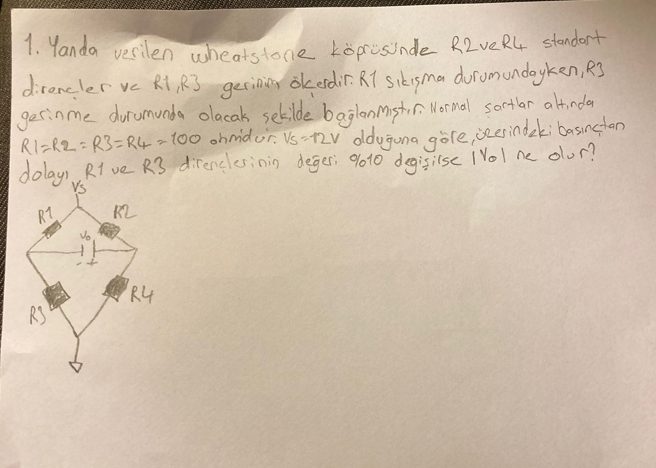 1. Yanda verilen wheatstone köprüsünde R2 ve R4 standart
dirençler ve R1, R3 gerinim ölçerdir. R1 sıkışma durumundayken, R3
gerinme durumunda olacak şekilde bağlanmıştır. Normal şartlar altında
R1=R2=R3=R4=100 ohmdur. Vs=12V olduğuna göre, üzerindeki basınçtan
dolayı, R1 ve R3 dirençlerinin değeri %10 değişirse |Vo| ne olur?
Vs
R1 R2
Vo
- +
R3 R4